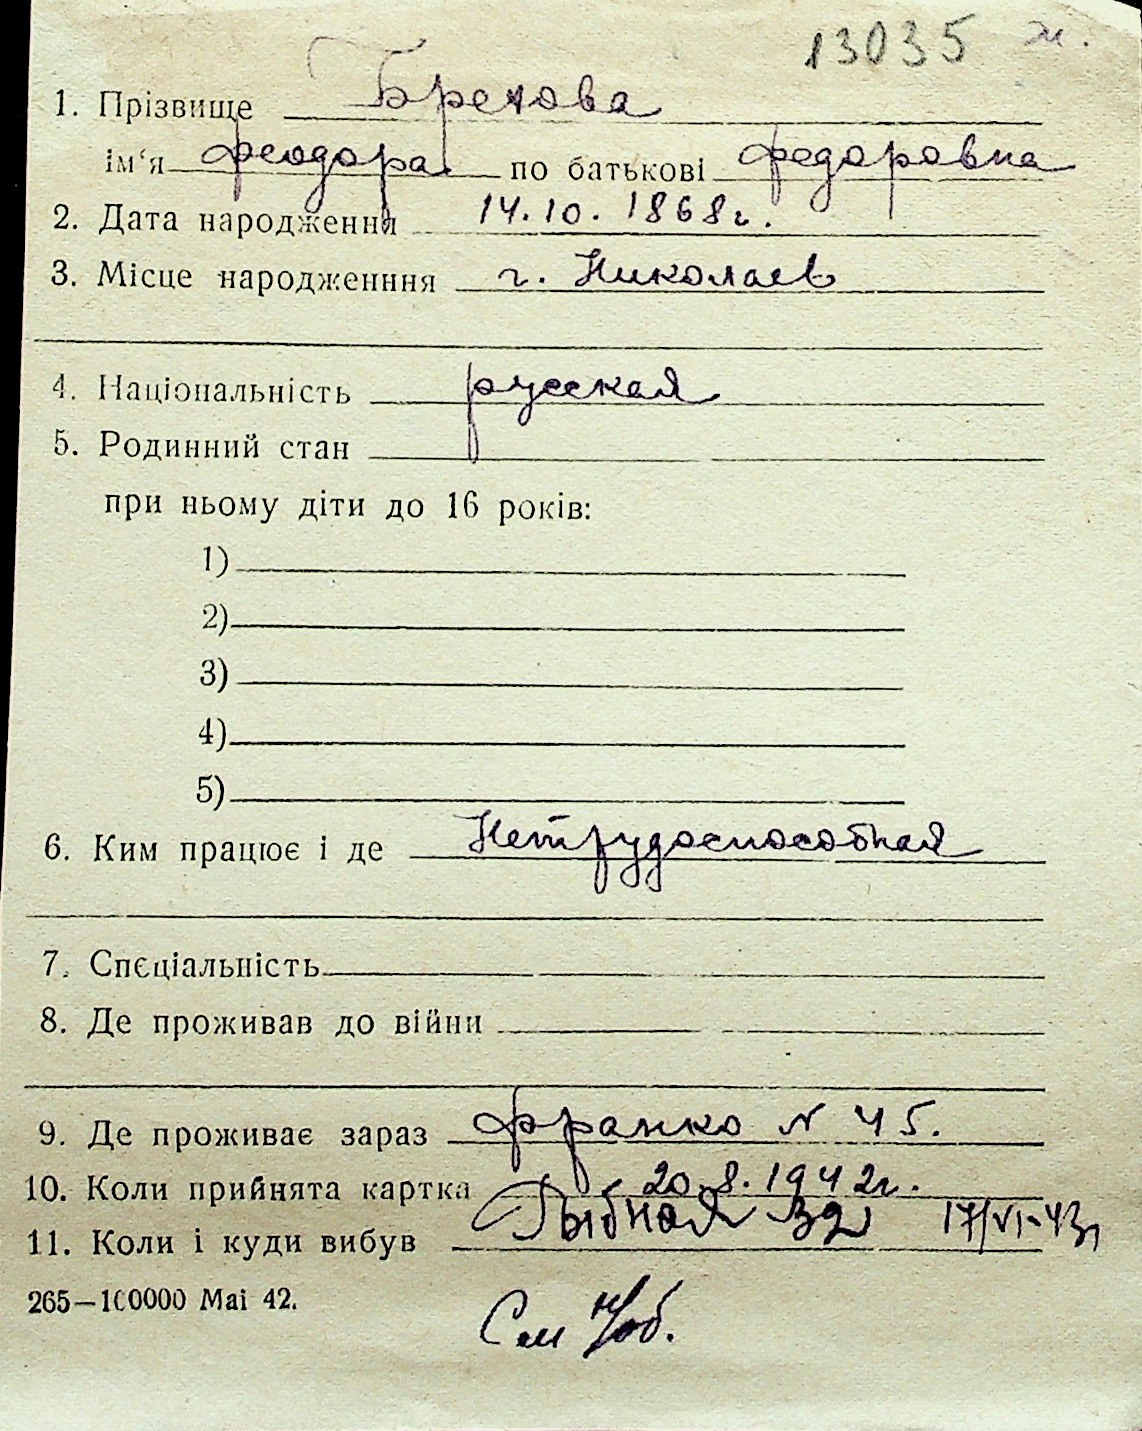 13035 ж.
1. Прізвище Брехова
ім‘я Феодора по батькові Федоровна
2. Дата народження 14.10.1868г.
3. Місце народженння г. Николаев
4. Національність русская
5. Родинний стан
при ньому діти до 16 років:
1)
2)
3)
4)
5)
6. Ким працює і де Нетрудоспособная
7. Спєціальність
8. Де проживав до війни
9. Де проживає зараз Франко N 45.
10. Коли прийнята картка 20.8.1942г.
11. Коли і куди вибув Рыбная 32 17/VI-43г
265—100000 Mai 42.
См